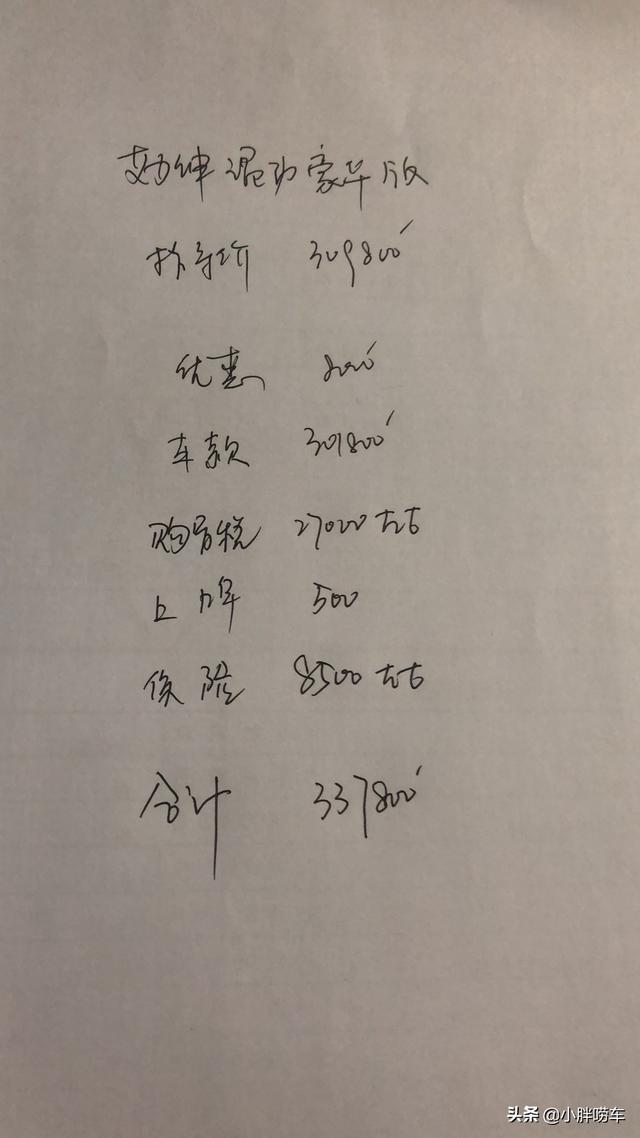 艾力绅混动豪华版
指导价 309800
优惠 8000
车款 301800
购置税 27000左右
上牌 500
保险 8500左右
合计 337800
头条 @小胖唠车